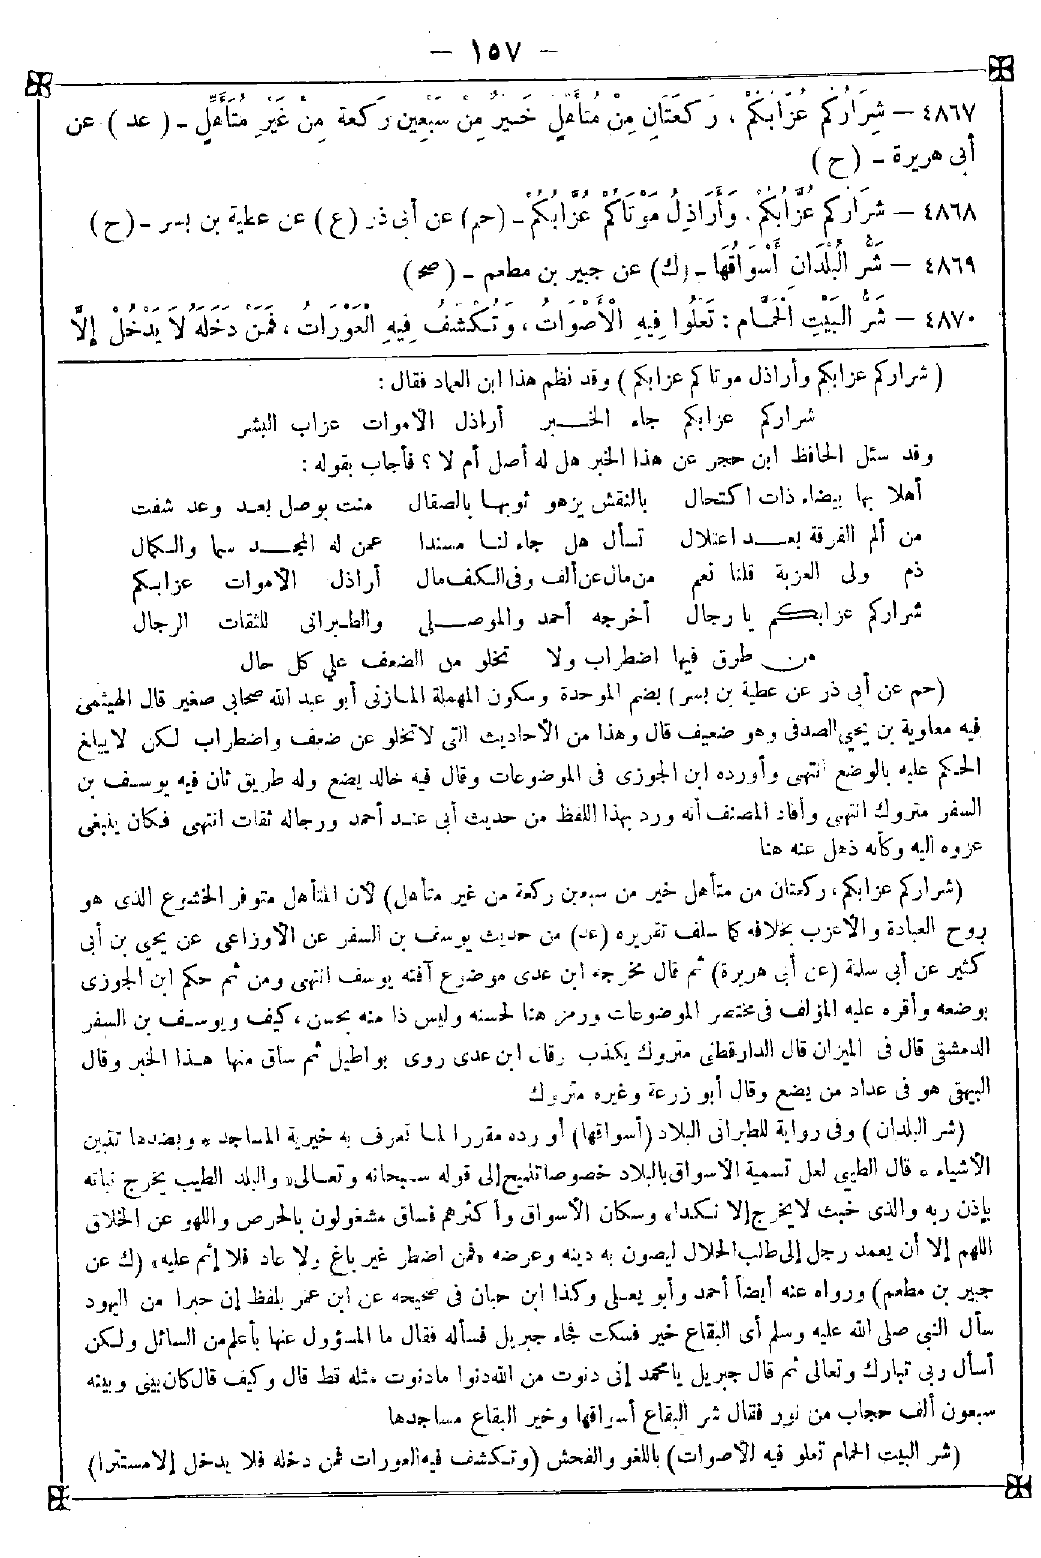 — ١٥٧ —
٤٨٦٧ — شِرَارُكُمْ عُزَّابُكُمْ، رَكْعَتَانِ مِنْ مُتَأَهِّلٍ خَيْرٌ مِنْ سَبْعِينَ رَكْعَةً مِنْ غَيْرِ مُتَأَهِّلٍ - (عد) عن
أبى هريرة - (ح)
٤٨٦٨ — شِرَارُكُمْ عُزَّابُكُمْ، وَأَرَاذِلُ مَوْتَاكُمْ عُزَّابُكُمْ - (حم) عن أبى ذر (ع) عن عطية بن بسر - (ح)
٤٨٦٩ — شَرُّ الْبُلْدَانِ أَسْوَاقُهَا - (ك) عن جبير بن مطعم - (صح)
٤٨٧٠ — شَرُّ الْبَيْتِ الْحَمَّامُ: تَعْلُوا فِيهِ الْأَصْوَاتُ، وَتُكْشَفُ فِيهِ الْعَوْرَاتُ، فَمَنْ دَخَلَهُ لَا يَدْخُلْ إِلَّا
(شراركم عزابكم وأراذل موتاكم عزابكم) وقد نظم هذا ابن العماد فقال:
شراركم عزابكم جاء الخبر أراذل الأموات عزاب البشر
وقد سئل الحافظ ابن حجر عن هذا الخبر هل له أصل أم لا؟ فأجاب بقوله:
أهلا بها بيضاء ذات اكتحال بالنقش يزهو ثوبها بالصقال منت بوصل بعد وعد شفت
من ألم الفرقة بعد اعتلال تسأل هل جاء لنا مسندا عمن له المجد سما والكمال
ذم ولى العزبة قلنا نعم من مال عن ألف وفى الكف مال أراذل الأموات عزابكم
شراركم عزابكم يا رجال أخرجه أحمد والموصلى والطبرانى للثقات الرجال
من طرق فيها اضطراب ولا تخلو من الضعف على كل حال
(حم عن أبى ذر عن عطية بن بسر) بضم الموحدة وسكون المهملة المازنى أبو عبد الله صحابى صغير قال الهيثمى
فيه معاوية بن يحيى الصدفى وهو ضعيف قال وهذا من الأحاديث التى لا تخلو عن ضعف واضطراب لكن لا يبلغ
الحكم عليه بالوضع انتهى وأورده ابن الجوزى فى الموضوعات وقال فيه خالد يضع وله طريق ثان فيه يوسف بن
السفر متروك انتهى وأفاد المصنف أنه ورد بهذا اللفظ من حديث أبى عند أحمد ورجاله ثقات انتهى فكان ينبغى
عزوه اليه وكأنه ذهل عنه هنا
(شراركم عزابكم، ركعتان من متأهل خير من سبعين ركعة من غير متأهل) لأن المتأهل متوفر الخشوع الذى هو
روح العبادة والأعزب بخلافه كما سلف تقريره (عد) من حديث يوسف بن السفر عن الأوزاعى عن يحيى بن أبى
كثير عن أبى سلمة (عن أبى هريرة) ثم قال مخرجه ابن عدى موضوع آفته يوسف انتهى ومن ثم حكم ابن الجوزى
بوضعه وأقره عليه المؤلف فى مختصر الموضوعات ورمز هنا لحسنه وليس ذا منه بحسن، كيف ويوسف بن السفر
الدمشقى قال فى الميزان قال الدارقطنى متروك يكذب وقال ابن عدى روى بواطيل ثم ساق منها هذا الخبر وقال
البيهقى هو فى عداد من يضع وقال أبو زرعة وغيره متروك
(شر البلدان) وفى رواية للطبرانى البلاد (أسواقها) أورده مقررا لما تعرف به خيرية المساجد ، وبضدها تتبين
الأشياء ، قال الطيبى لعل تسمية الأسواق بالبلاد خصوصا تلميح إلى قوله سبحانه وتعالى «والبلد الطيب يخرج نباته
بإذن ربه والذى خبث لا يخرج إلا نكدا» وسكان الأسواق وأكثرهم فساق مشغولون بالحرص واللهو عن الخلاق
اللهم إلا أن يعمد رجل إلى طلب الحلال ليصون به دينه وعرضه «فمن اضطر غير باغ ولا عاد فلا إثم عليه» (ك عن
جبير بن مطعم) ورواه عنه أيضا أحمد وأبو يعلى وكذا ابن حبان فى صحيحه عن ابن عمر بلفظ إن حبرا من اليهود
سأل النبى صلى الله عليه وسلم أى البقاع خير فسكت فجاء جبريل فسأله فقال ما المسؤول عنها بأعلم من السائل ولكن
أسأل ربى تبارك وتعالى ثم قال جبريل يا محمد إنى دنوت من الله دنوا ما دنوت مثله قط قال وكيف قال كان بينى وبينه
سبعون ألف حجاب من نور فقال شر البقاع أسواقها وخير البقاع مساجدها
(شر البيت الحمام تعلو فيه الأصوات) باللغو والفحش (وتكشف فيه العورات فمن دخله فلا يدخل إلا مستترا)